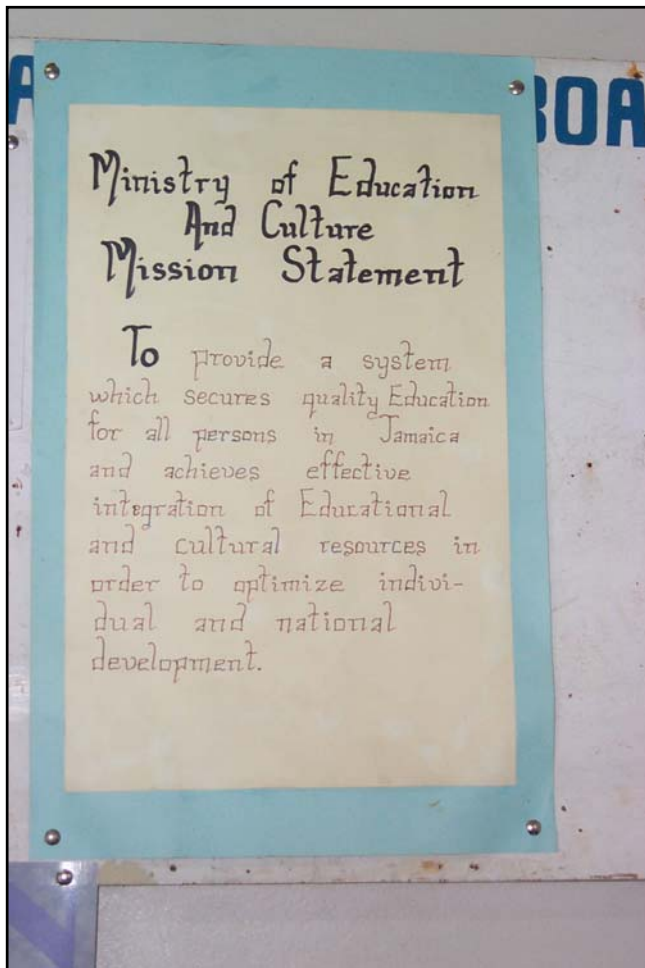 BOA
Ministry of Education
And Culture
Mission Statement
To provide a system
which secures quality Education
for all persons in Jamaica
and achieves effective
integration of Educational
and cultural resources in
order to optimize indivi-
dual and national
development.